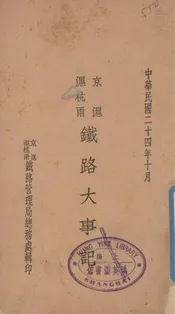 中華民國二十四年十月
京滬
滬杭甬
鐵路大事記
京滬
滬杭甬
鐵路管理局總務處編印
LIBRARY
SHANGHAI